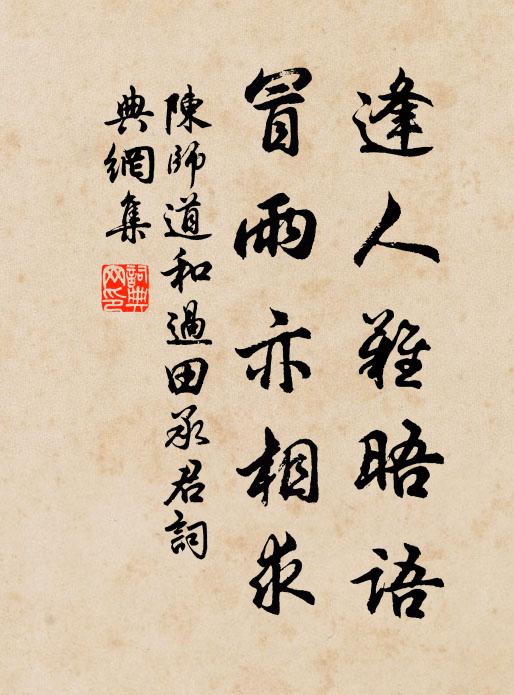 逢人難晤語
冒雨亦相求
陳師道和過田承君詞
典網集
詞典
网印